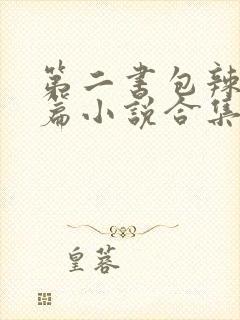 第二书包辣
篇小说合集
皇蓉